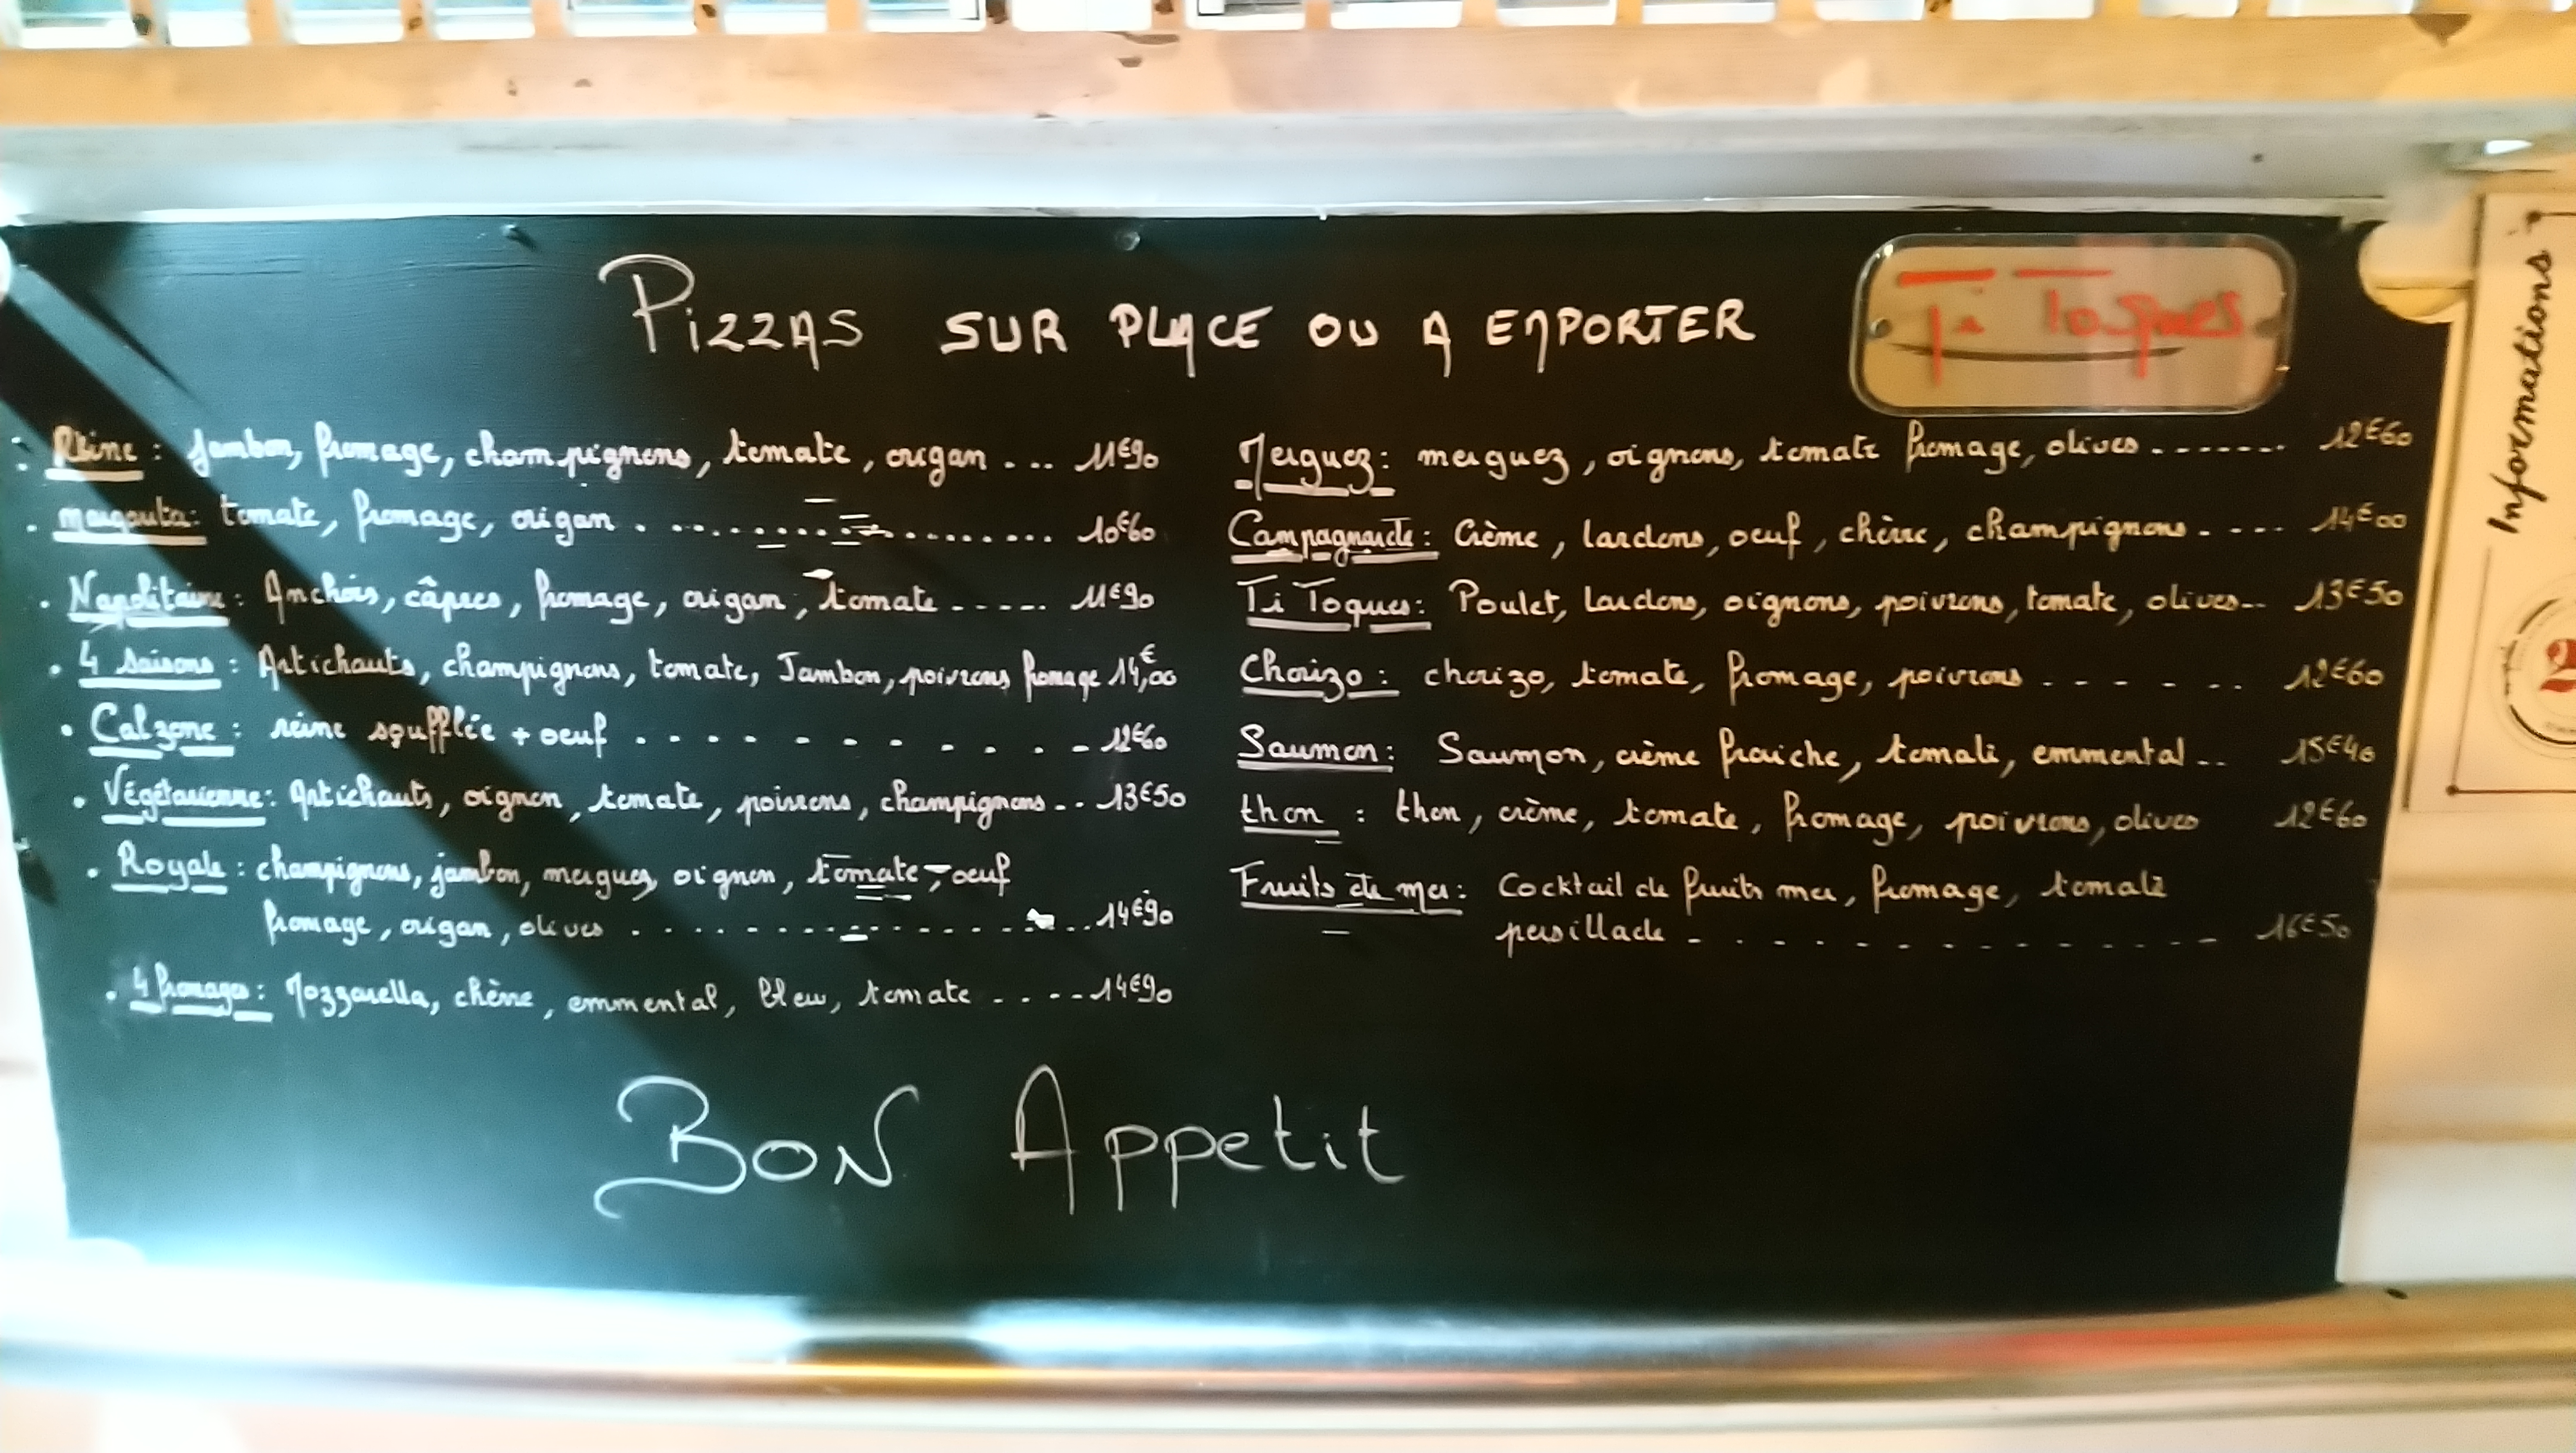 Pizzas SUR PLACE OU A EMPORTER
Ti Toques
Reine : Jambon, fromage, champignons, tomate, origan .... 11€90
margarita : tomate, fromage, origan .................. 10€60
Napolitaine : Anchois, câpres, fromage, origan, tomate ..... 11€90
4 saisons : Artichauts, champignons, tomate, Jambon, poivrons fromage 14,00€
Calzone : reine soufflée + oeuf ............ 12€60
Végétarienne : Artichauts, oignon, tomate, poivrons, champignons ... 13€50
Royale : champignons, jambon, merguez, oignon, tomate, oeuf
fromage, origan, olives .................. 14€90
4 fromages : Mozzarella, chèvre, emmental, bleu, tomate ..... 14€90
Merguez : merguez, oignons, tomate fromage, olives ....... 12€60
Campagnarde : Crème, lardons, oeuf, chèvre, champignons ..... 14€00
Ti Toques : Poulet, lardons, oignons, poivrons, tomate, olives .. 13€50
Chorizo : chorizo, tomate, fromage, poivrons ....... 12€60
Saumon : Saumon, crème fraiche, tomate, emmental .. 15€40
thon : thon, crème, tomate, fromage, poivrons, olives 12€60
Fruits de mer : Cocktail de fruits mer, fromage, tomate
persillade .............. 16€50
Bon Appetit
Informations